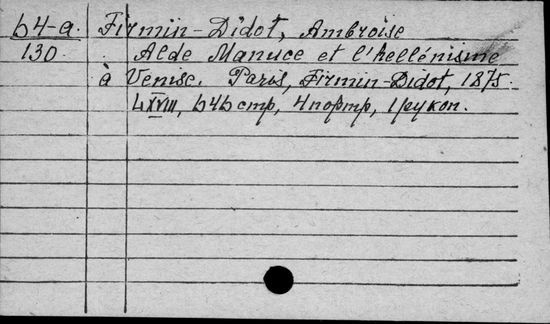 64-a. Firmin-Didot, Ambroise
130 Alde Manuce et l'hellénisme
à Venise. Paris, Firmin-Didot, 1875.
LXVIII, 646 стр, 4 портр, 1 рукоп.